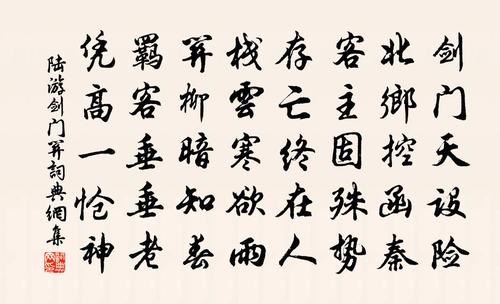 剑门天设险
北鄉控函秦
客主固殊势
存亡终在人
栈雲寒欲雨
関柳暗知春
羈客垂垂老
凭高一怆神
陆游剑门関詞典網集